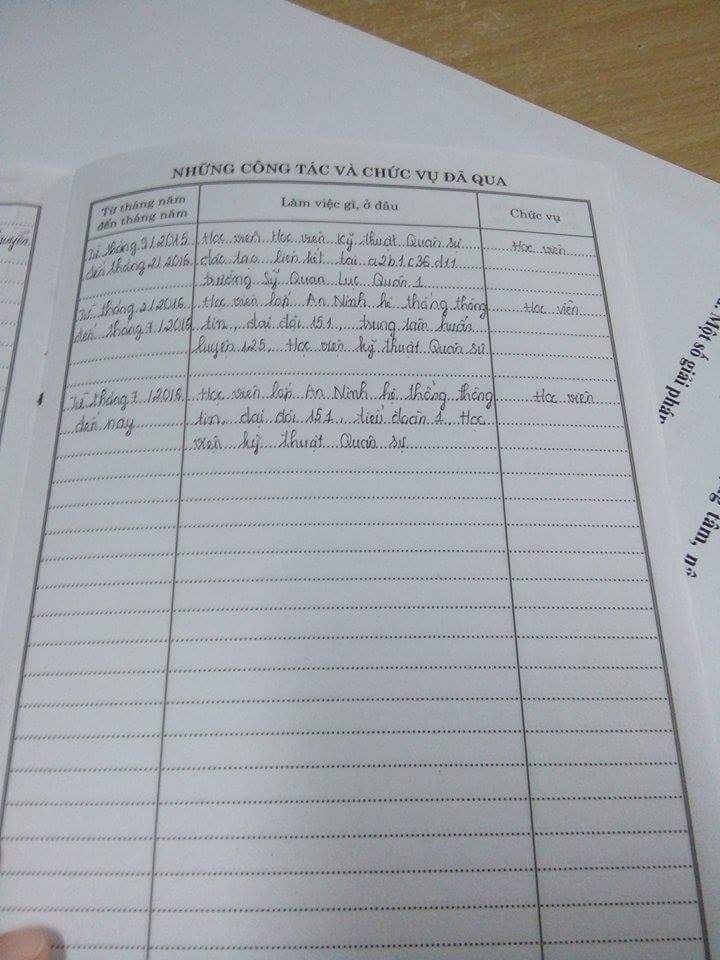 NHỮNG CÔNG TÁC VÀ CHỨC VỤ ĐÃ QUA
Từ tháng năm
đến tháng năm
Làm việc gì, ở đâu
Chức vụ
Từ tháng 9/2015
đến tháng 2/2016
Học viên Học viện Kỹ thuật Quân sự
đào tạo liên kết tại a2b1c36d11
trường Sỹ Quan Lục Quân 1
Học viên
Từ tháng 2/2016
đến tháng 7/2016
Học viên lớp An Ninh hệ thống thông
tin, đại đội 151, trung tâm huấn
luyện 125, Học viện kỹ thuật Quân sự
Học viên
Từ tháng 7/2016
đến nay
Học viên lớp An Ninh hệ thống thông
tin, đại đội 151, tiểu đoàn 1, Học
viện kỹ thuật Quân sự
Học viên
Một số giải pháp
tâm, n